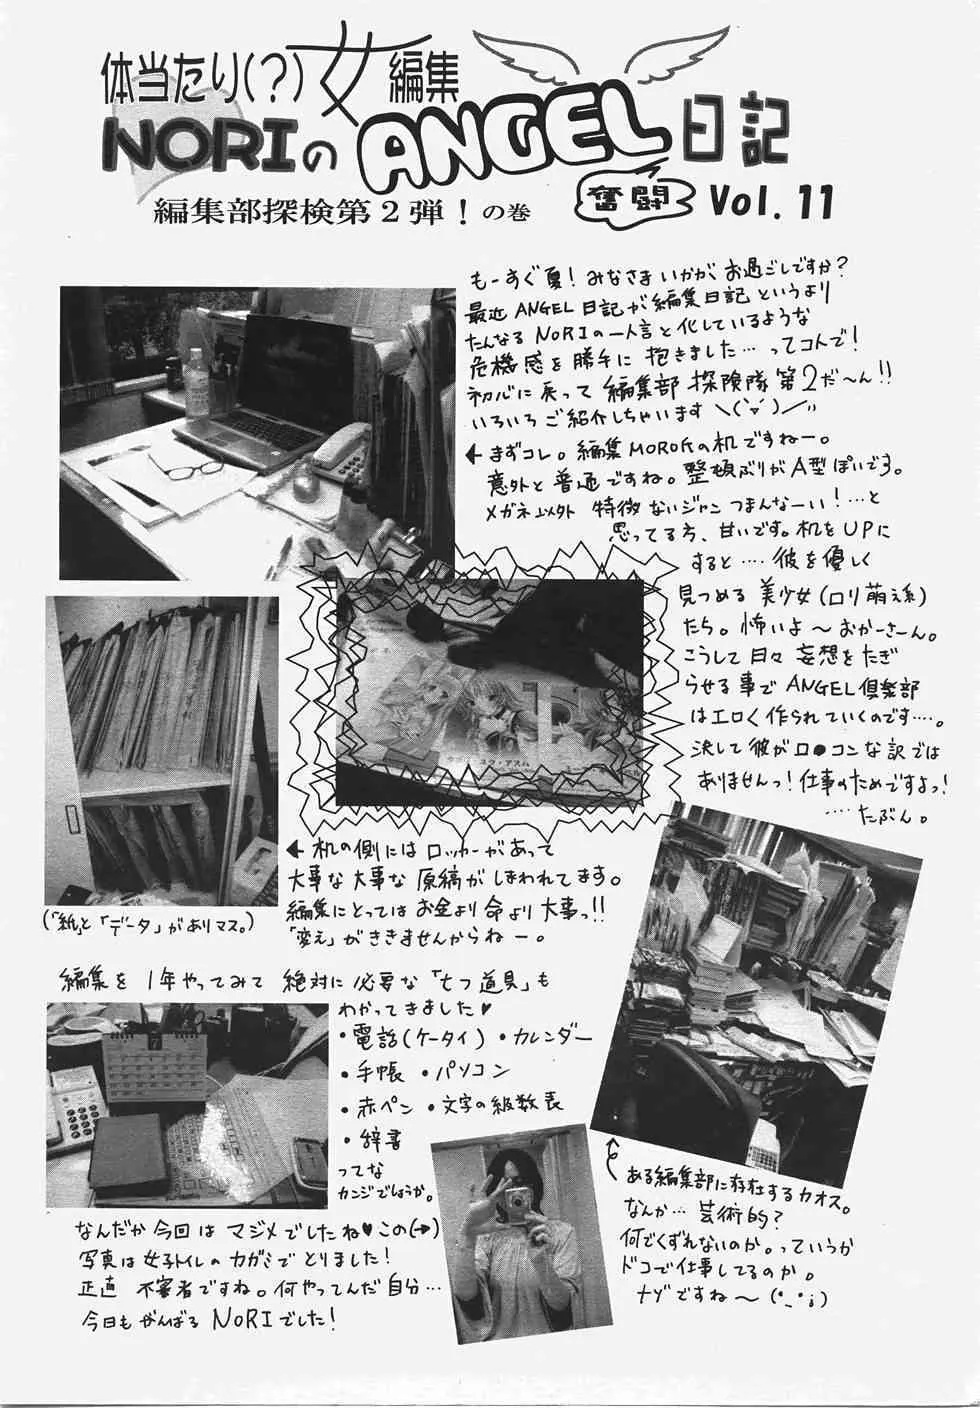 体当たり(?)女編集
NORIのANGEL日記
奮闘 Vol. 11
編集部探検第2弾!の巻
もーすぐ夏!みなさまいかがお過ごしですか?
最近ANGEL日記が編集日記というより
たんなるNORIの一人言と化しているような
危機感を勝手に抱きました…ってコトで!
初心に戻って編集部探険隊第2だ〜ん!!
いろいろご紹介しちゃいます\(˙▿˙)/〃
←まずコレ。編集MORO氏の机ですねー。
意外と普通ですね。整頓ぶりがA型ぽいです。
メガネ以外特徴ないジャンつまんなーい!…と
思ってる方、甘いです。机をUPに
すると…. 彼を優しく
見つめる美少女(ロリ萌え系)
たち。怖いよ〜おかーさーん。
こうして日々妄想をたぎ
らせる事でANGEL倶楽部
はエロく作られていくのです….。
決して彼がロ●コンな訳では
ありませんっ!仕事のためですよっ!
….たぶん。
ユフ・アスム
←机の側にはロッカーがあって
大事な大事な原稿がしまわれてます。
編集にとってはお金より命より大事っ!!
「変え」がききませんからねー。
(「紙」と「データ」がありマス。)
編集を1年やってみて絶対に必要な「七つ道具」も
わかってきました♥
・電話(ケータイ)・カレンダー
・手帳・パソコン
・赤ペン・文字の級数表
・辞書
ってな
カンジでしょうか。
7
なんだか今回はマジメでしたね♥この(→)
写真は女子トイレのカガミでとりました!
正直不審者ですね。何やってんだ自分…
今日もがんばるNORIでした!
ある編集部に存在するカオス。
なんか…芸術的?
何でくずれないのか。っていうか
ドコで仕事してるのか。
ナゾですね〜(•_•;)